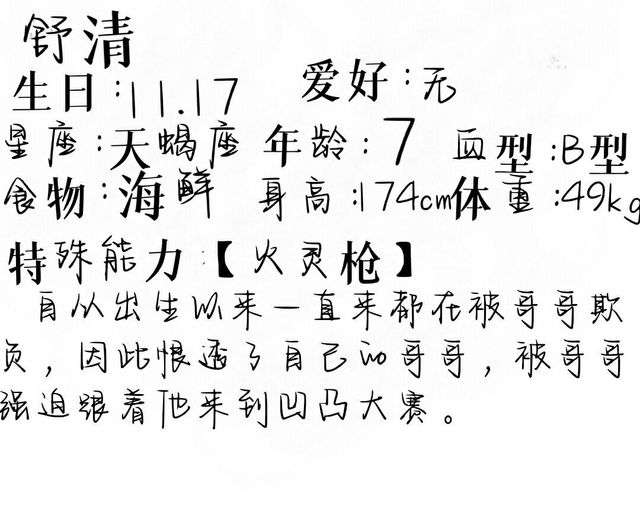 舒清
生日:11.17 爱好:无
星座:天蝎座 年龄:7 血型:B型
食物:海鲜 身高:174cm体重:49kg
特殊能力:【火灵枪】
自从出生以来一直来都在被哥哥欺
负，因此恨透了自己的哥哥，被哥哥
强迫跟着他来到凹凸大赛。